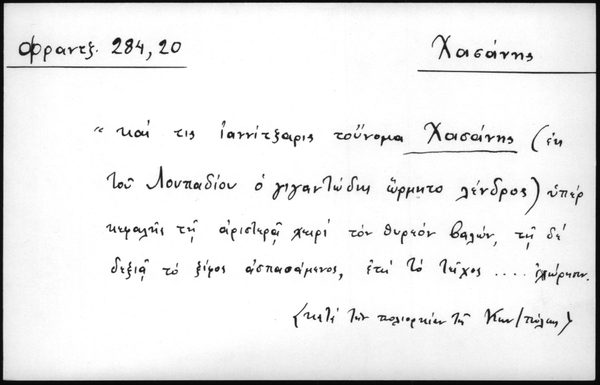 Φραντζ. 284,20
Χασάνης
"καί τις ἰαννίτζαρις τοὔνομα Χασάνης (ἐκ
τοῦ Λουπαδίου ὁ γιγαντώδης ὥρμητο λένδρος) ὑπέρ
κεφαλῆς τῇ ἀριστερᾷ χειρί τόν θυρεόν βαλών, τῇ δέ
δεξιᾷ τό ξίφος ἀσπασάμενος, ἐπί τό τεῖχος .... ἐχώρησεν.
(κατά τήν πολιορκίαν τῆς Κων/πόλεως)